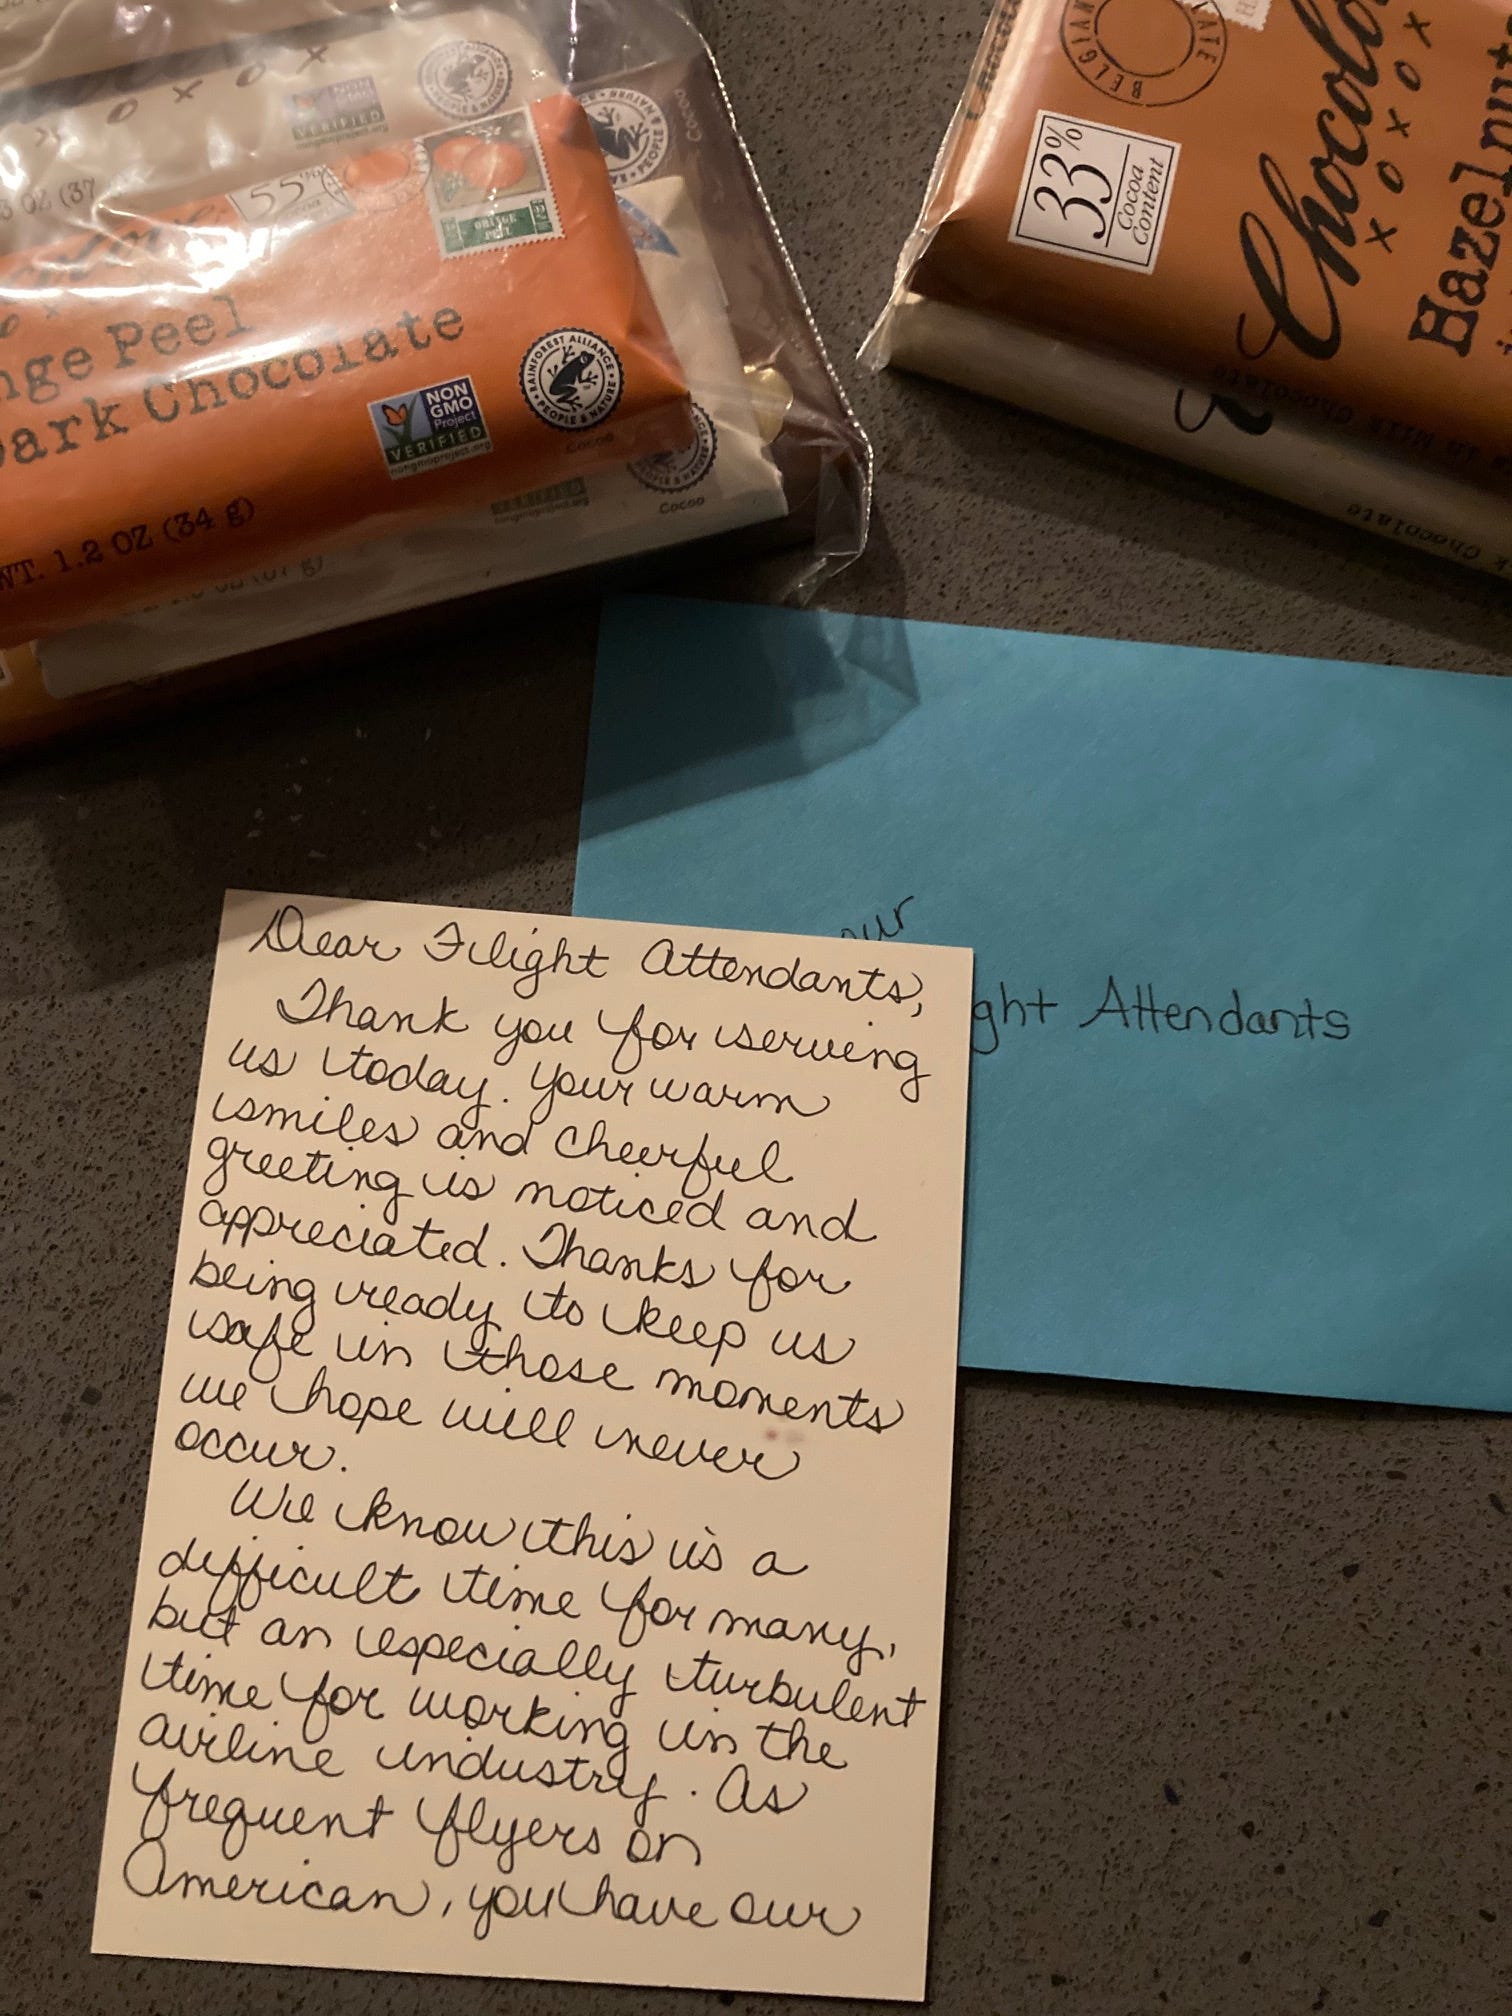 VERIFIED
55%
ORANGE
PEEL
nge Peel
Dark Chocolate
NON
GMO
Project
VERIFIED
nongmoproject.org
RAINFOREST ALLIANCE
PEOPLE & NATURE
Cocoa
WT. 1.2 OZ (34 g)
Cocoa
BELGIAN
33%
Cocoa
Content
Chocolo
x o x o x
Hazelnut
in Milk Chocolate
Chocolate
our
ght Attendants
Dear Flight Attendants,
Thank you for serving
us today. Your warm
smiles and cheerful
greeting is noticed and
appreciated. Thanks for
being ready to keep us
safe in those moments
we hope will never
occur.
We know this is a
difficult time for many,
but an especially turbulent
time for working in the
airline industry. As
frequent flyers on
American, you have our